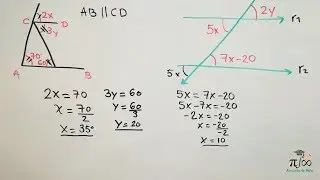 AB || CD
C
2x
D
3y
70
60
A
B
2y
r₁
5x
7x-20
5x
r₂
2x = 70
x = 70/2
x = 35°
3y = 60
y = 60/3
y = 20
5x = 7x-20
5x-7x = -20
-2x = -20
x = -20/-2
x = 10
π/∞